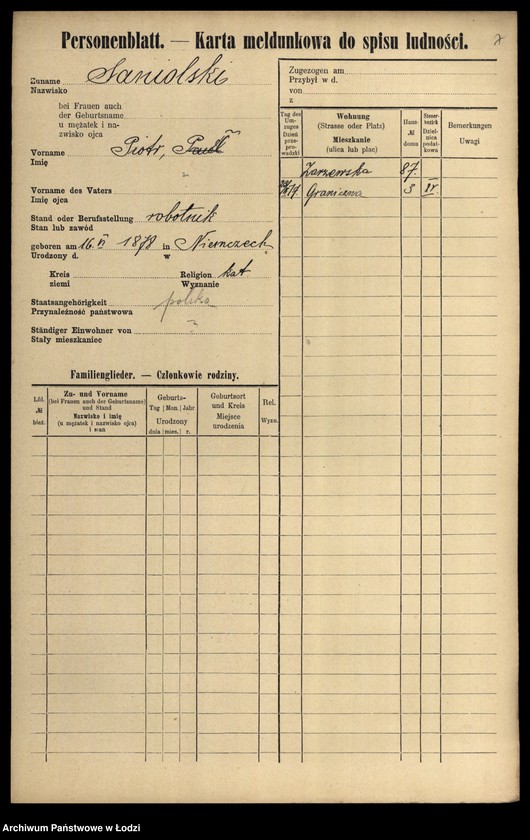 Personenblatt. — Karta meldunkowa do spisu ludności.
7
Zuname Saniolski
Nazwisko
bei Frauen auch
der Geburtsname
u mężatek i na-
zwisko ojca
Vorname Piotr,
Imię
Vorname des Vaters
Imię ojca
Stand oder Berufsstellung robotnik
Stan lub zawód
geboren am 16 VI 1878 in Niemczech
Urodzony d. w
Kreis Religion kat
ziemi Wyznanie
Staatsangehörigkeit polska
Przynależność państwowa
Ständiger Einwohner von ?
Stały mieszkaniec
Zugezogen am
Przybył w d.
von
z
Tag des Umzuges Dzień przeprowadzki
Wohnung
(Strasse oder Platz)
Mieszkanie
(ulica lub plac)
Haus- № domu
Steuerbezirk Dzielnica podatkowa
Bemerkungen
Uwagi
Zarzewska 87.
17 Graniczna 3 IV.
Familienglieder. — Członkowie rodziny.
Lfd. № bież.
Zu- und Vorname
(bei Frauen auch der Geburtsname)
und Stand
Nazwisko i imię
(u mężatek i nazwisko ojca)
i stan
Geburts-
Tag | Mon. | Jahr
Urodzony
dnia | mies. | r.
Geburtsort
und Kreis
Miejsce
urodzenia
Rel.
Wyzn.
Archiwum Państwowe w Łodzi